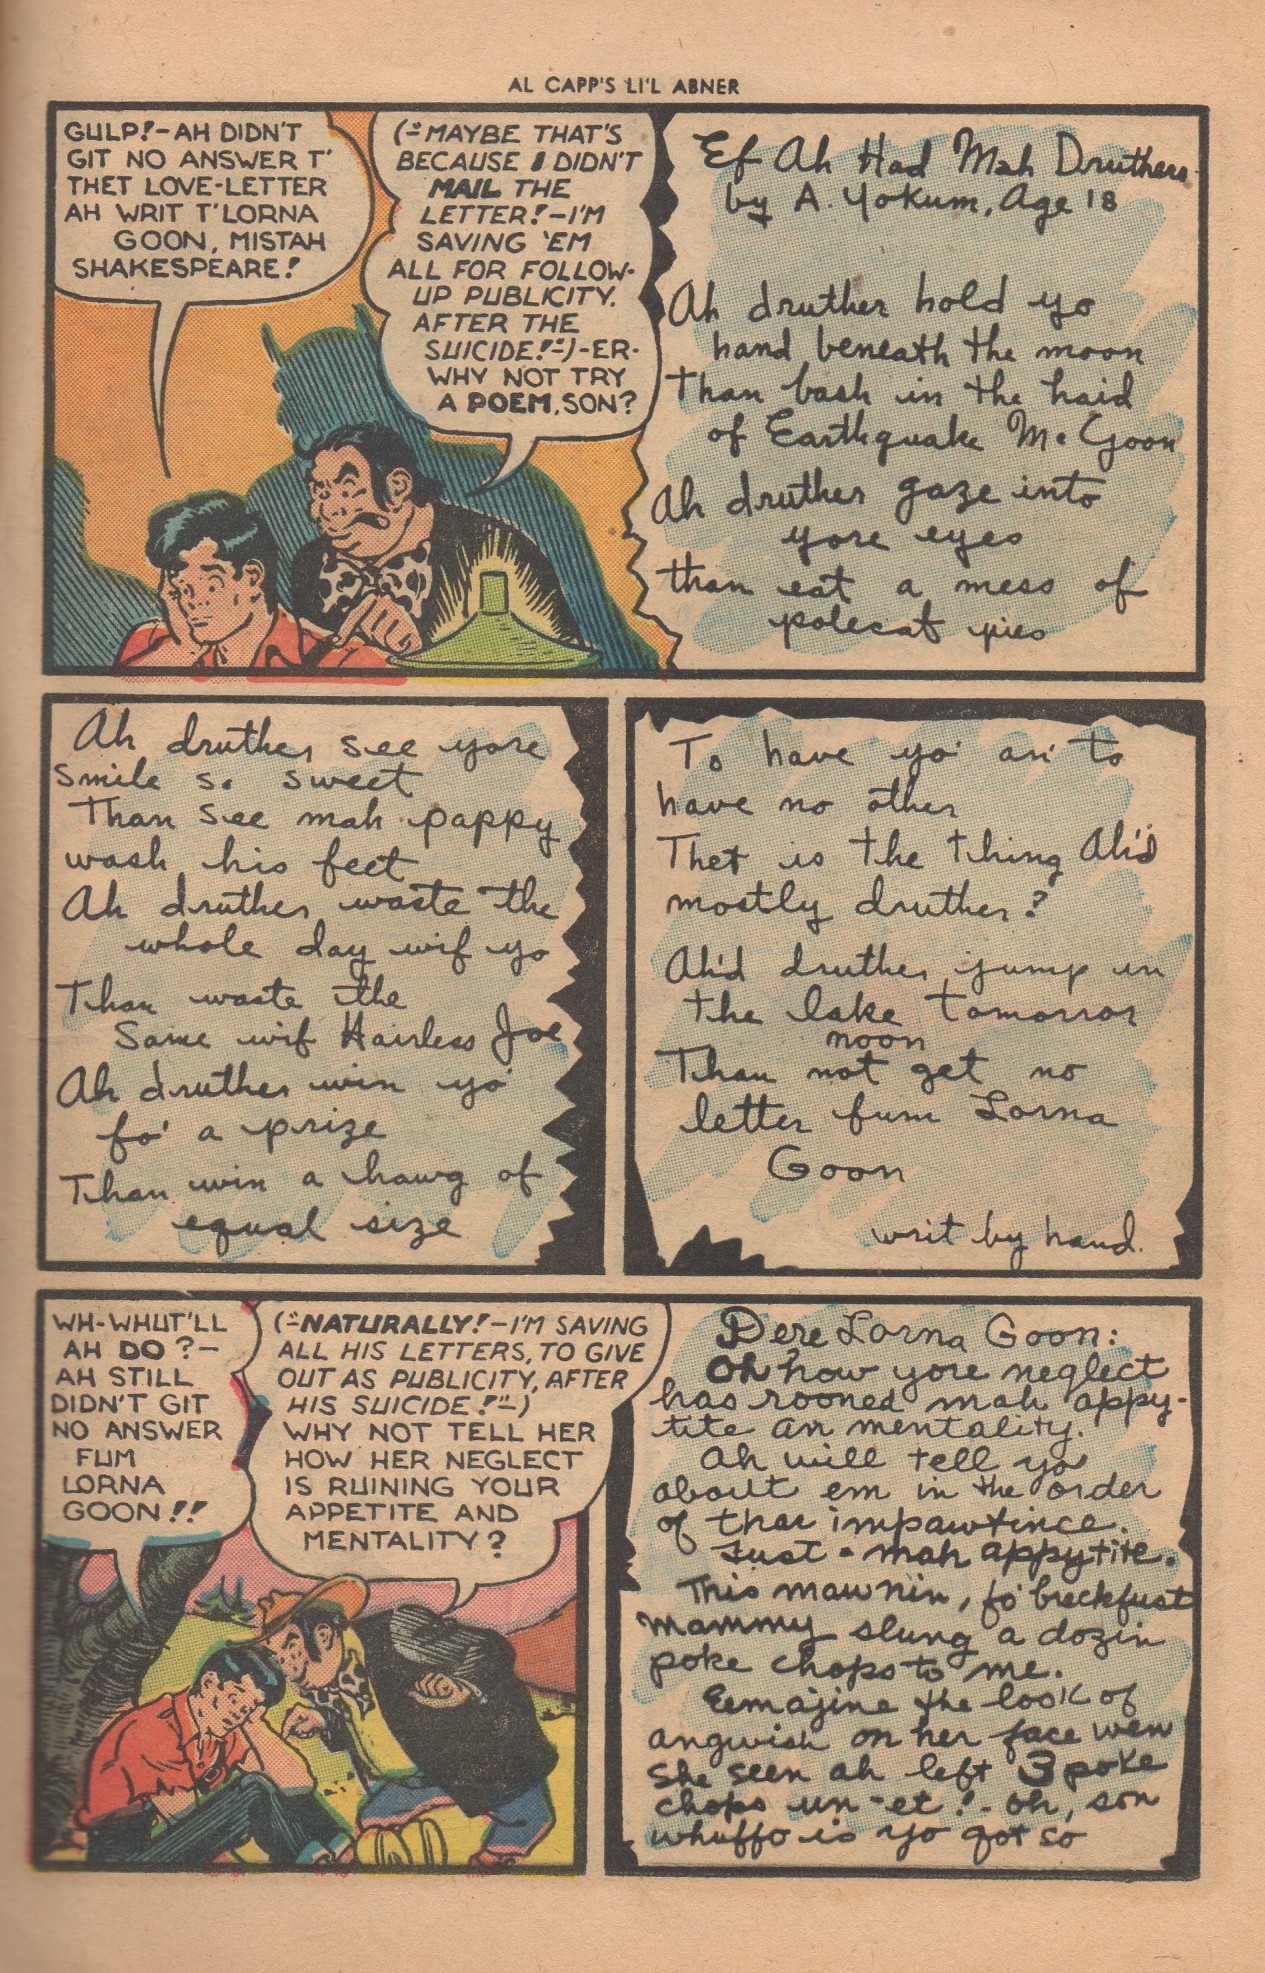 AL CAPP'S LI'L ABNER
GULP!-AH DIDN'T
GIT NO ANSWER T'
THET LOVE-LETTER
AH WRIT T'LORNA
GOON, MISTAH
SHAKESPEARE!
(-"MAYBE THAT'S
BECAUSE I DIDN'T
MAIL THE
LETTER!-I'M
SAVING 'EM
ALL FOR FOLLOW-
UP PUBLICITY.
AFTER THE
SUICIDE!"-)-ER-
WHY NOT TRY
A POEM, SON?
Ef Ah Had Mah Druthers
by A. Yokum, Age 18
Ah druther hold yo
hand beneath the moon
Than bash in the haid
of Earthquake McGoon
Ah druther gaze into
yore eyes
than eat a mess of
polecat pies
Ah druther see yore
smile so sweet
Than see mah pappy
wash his feet
Ah druther waste the
whole day wif yo
Than waste the
Same wif Hairless Joe
Ah druther win yo'
fo' a prize
Than win a hawg of
equal size
To have yo' an' to
have no other
Thet is the thing Ah'd
mostly druther?
Ah'd druther jump in
the lake tomorror
noon
Than not get no
letter fum Lorna
Goon
writ by hand.
WH-WHUT'LL
AH DO?-
AH STILL
DIDN'T GIT
NO ANSWER
FUM
LORNA
GOON!!
(-"NATURALLY!-I'M SAVING
ALL HIS LETTERS, TO GIVE
OUT AS PUBLICITY, AFTER
HIS SUICIDE!"-)
WHY NOT TELL HER
HOW HER NEGLECT
IS RUINING YOUR
APPETITE AND
MENTALITY?
Dere Lorna Goon:
Oh how yore neglect
has rooned mah appy-
tite an mentality.
Ah will tell yo
about em in the order
of thar impawtince.
Fust - mah appytite.
This mawnin, fo' breckfust
mammy slung a dozin
poke chops to me.
Eemajine the look of
angwish on her face wen
she seen ah left 3 poke
chops un-et!- Oh, son
whuffo is yo got so